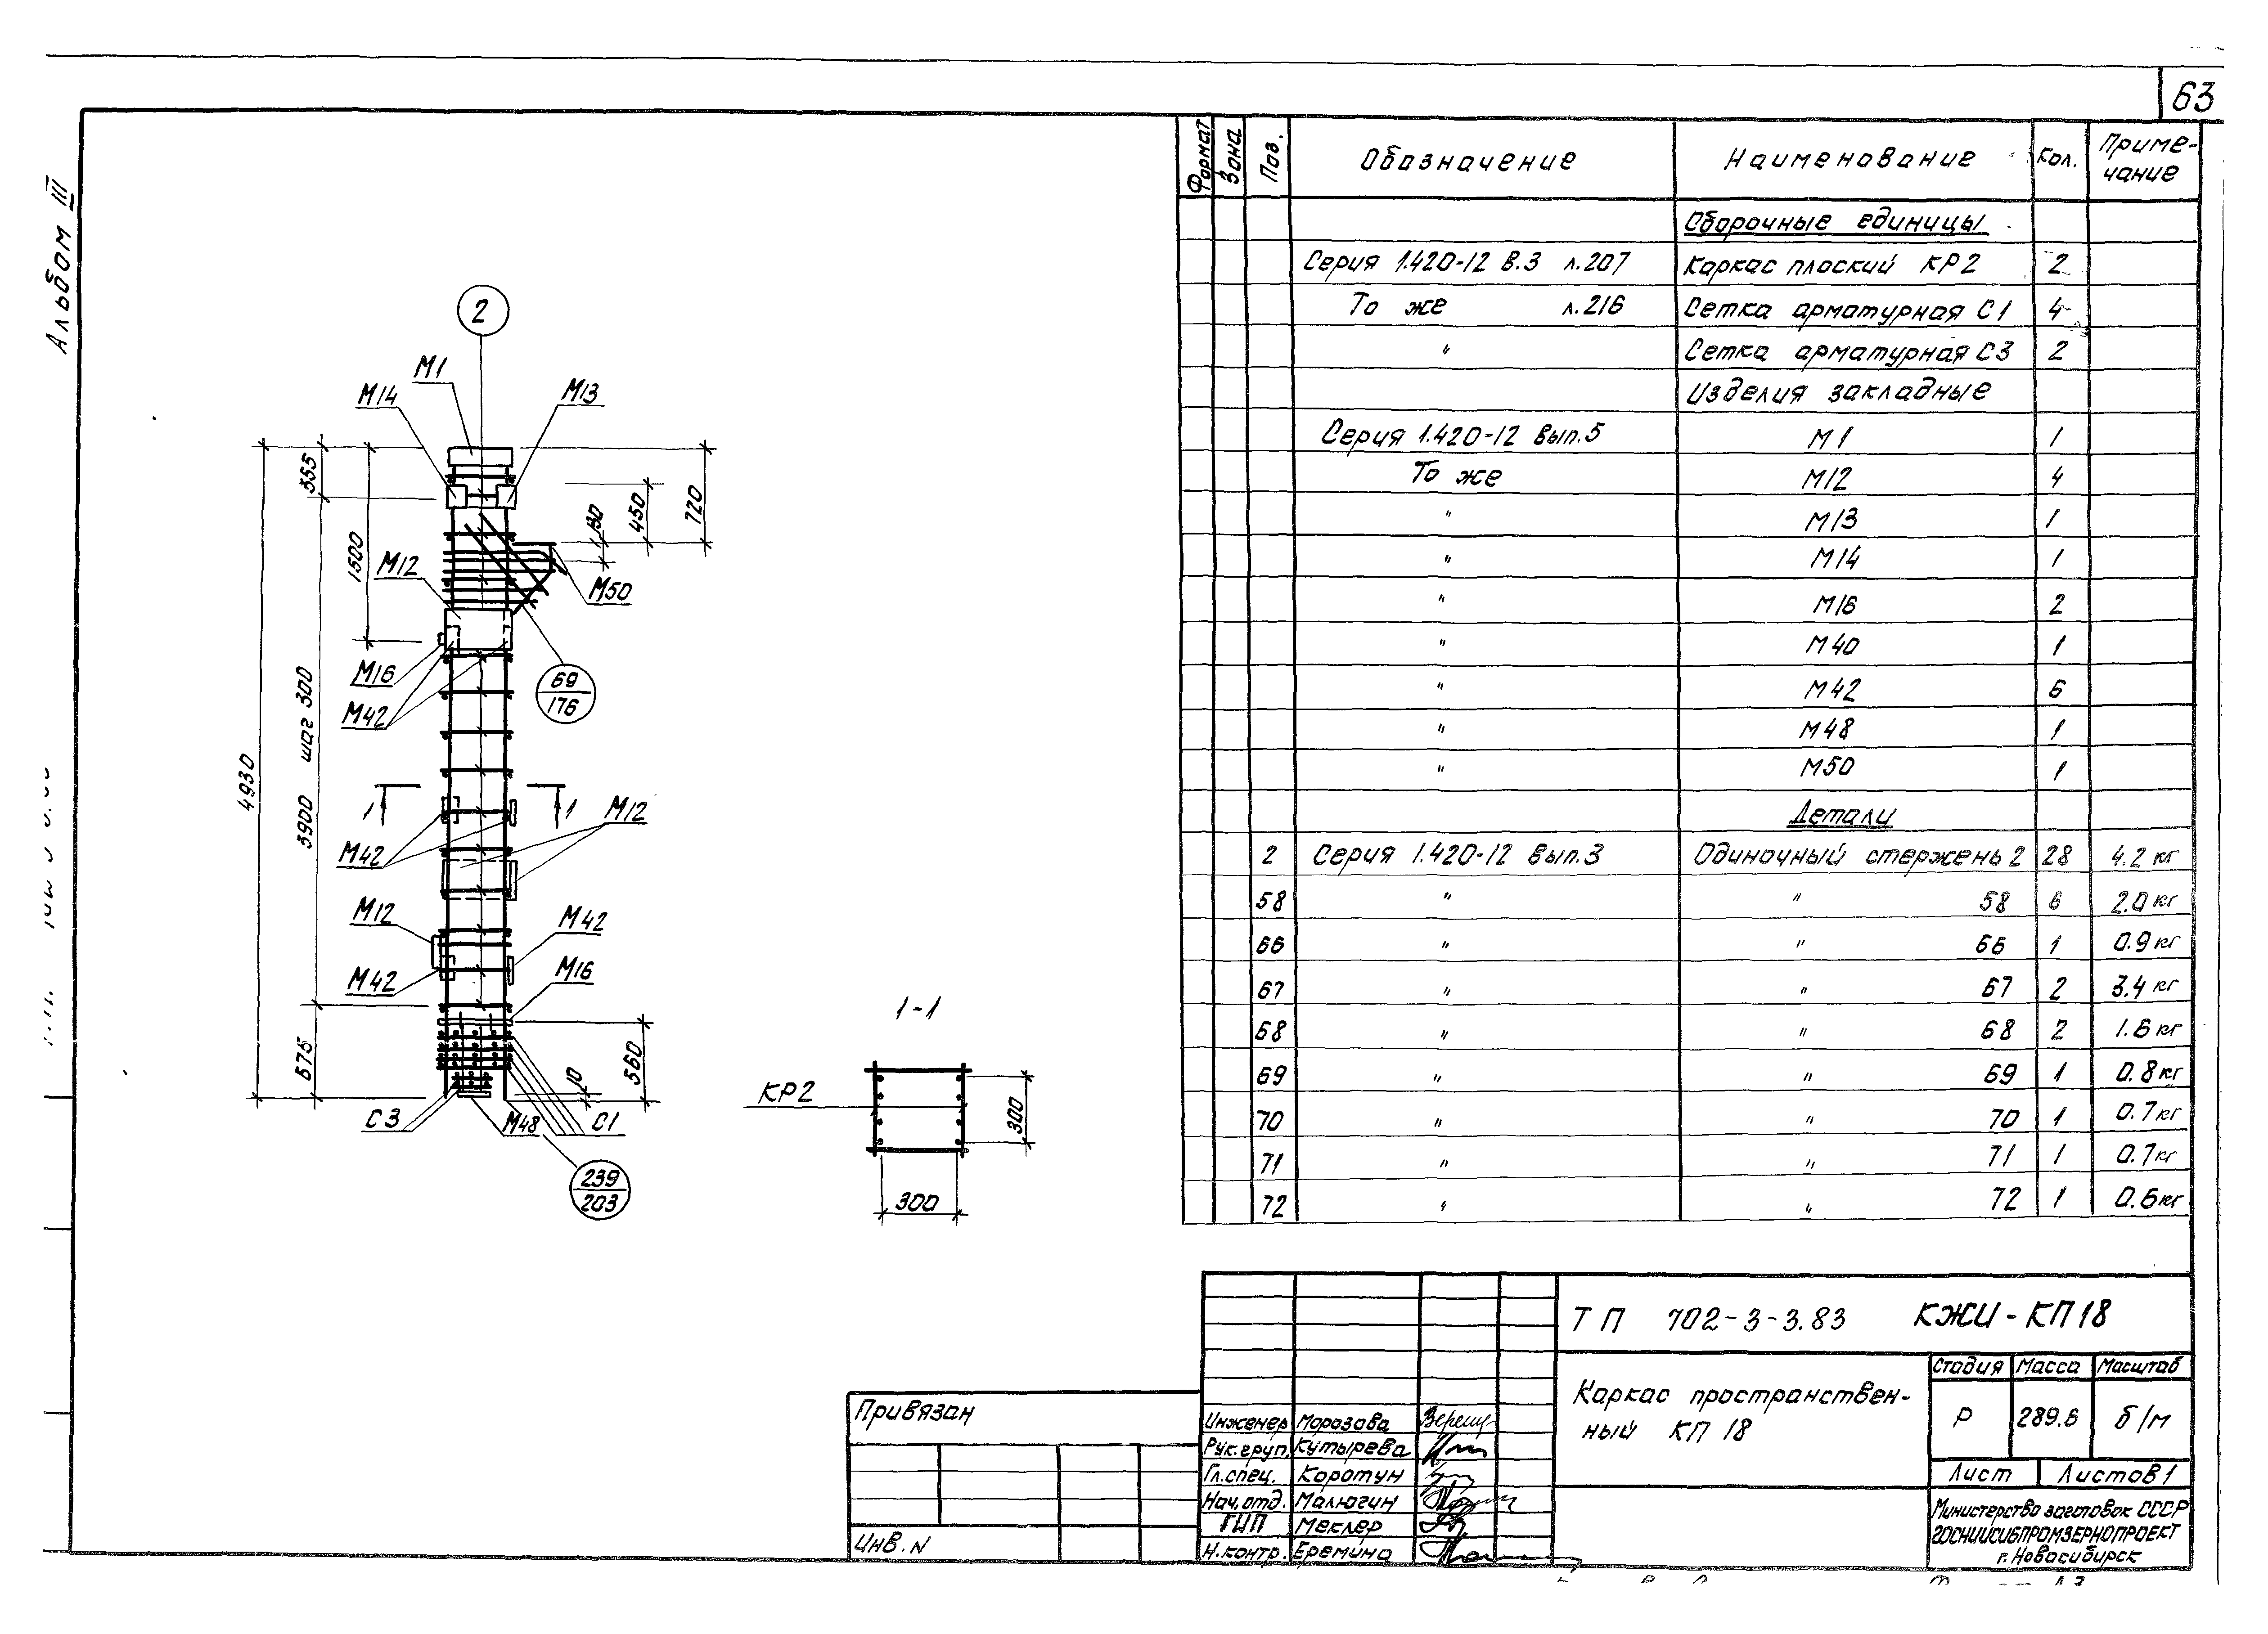 63
Альбом III
Формат Зона Поз. Обозначение Наименование Кол. Приме-
чание
Сборочные единицы
Серия 1.420-12 В.3 л.207 Каркас плоский КР2 2
То же л.216 Сетка арматурная С1 4
" Сетка арматурная С3 2
Изделия закладные
Серия 1.420-12 Вып.5 М1 1
То же М12 4
" М13 1
" М14 1
" М16 2
" М40 1
" М42 6
" М48 1
" М50 1
Детали
2 Серия 1.420-12 Вып.3 Одиночный стержень 2 28 4.2 кг
58 " " 58 6 2.0 кг
66 " " 66 1 0.9 кг
67 " " 67 2 3.4 кг
68 " " 68 2 1.6 кг
69 " " 69 1 0.8 кг
70 " " 70 1 0.7 кг
71 " " 71 1 0.7 кг
72 " " 72 1 0.6 кг
2
М1
М14
М13
355
1500
450
130
720
М12
М50
М16
М42
69
176
4930
3900 шаг 300
1
1
М12
М42
М12
М42
М42
М16
575
560
10
С3
М48
С1
239
203
1-1
КР2
300
300
ТП 702-3-3.83 КЖИ-КП18
Каркас пространствен-
ный КП 18
Стадия Масса Масштаб
Р 289.6 б/м
Лист Листов 1
Министерство заготовок СССР
ГОСНИИСИБПРОМЗЕРНОПРОЕКТ
г. Новосибирск
Привязан
Инв. N
Инженер Морозова
Рук.груп. Кутырева
Гл.спец. Коротун
Нач.отд. Малюгин
ГИП Меклер
Н.контр. Еремина